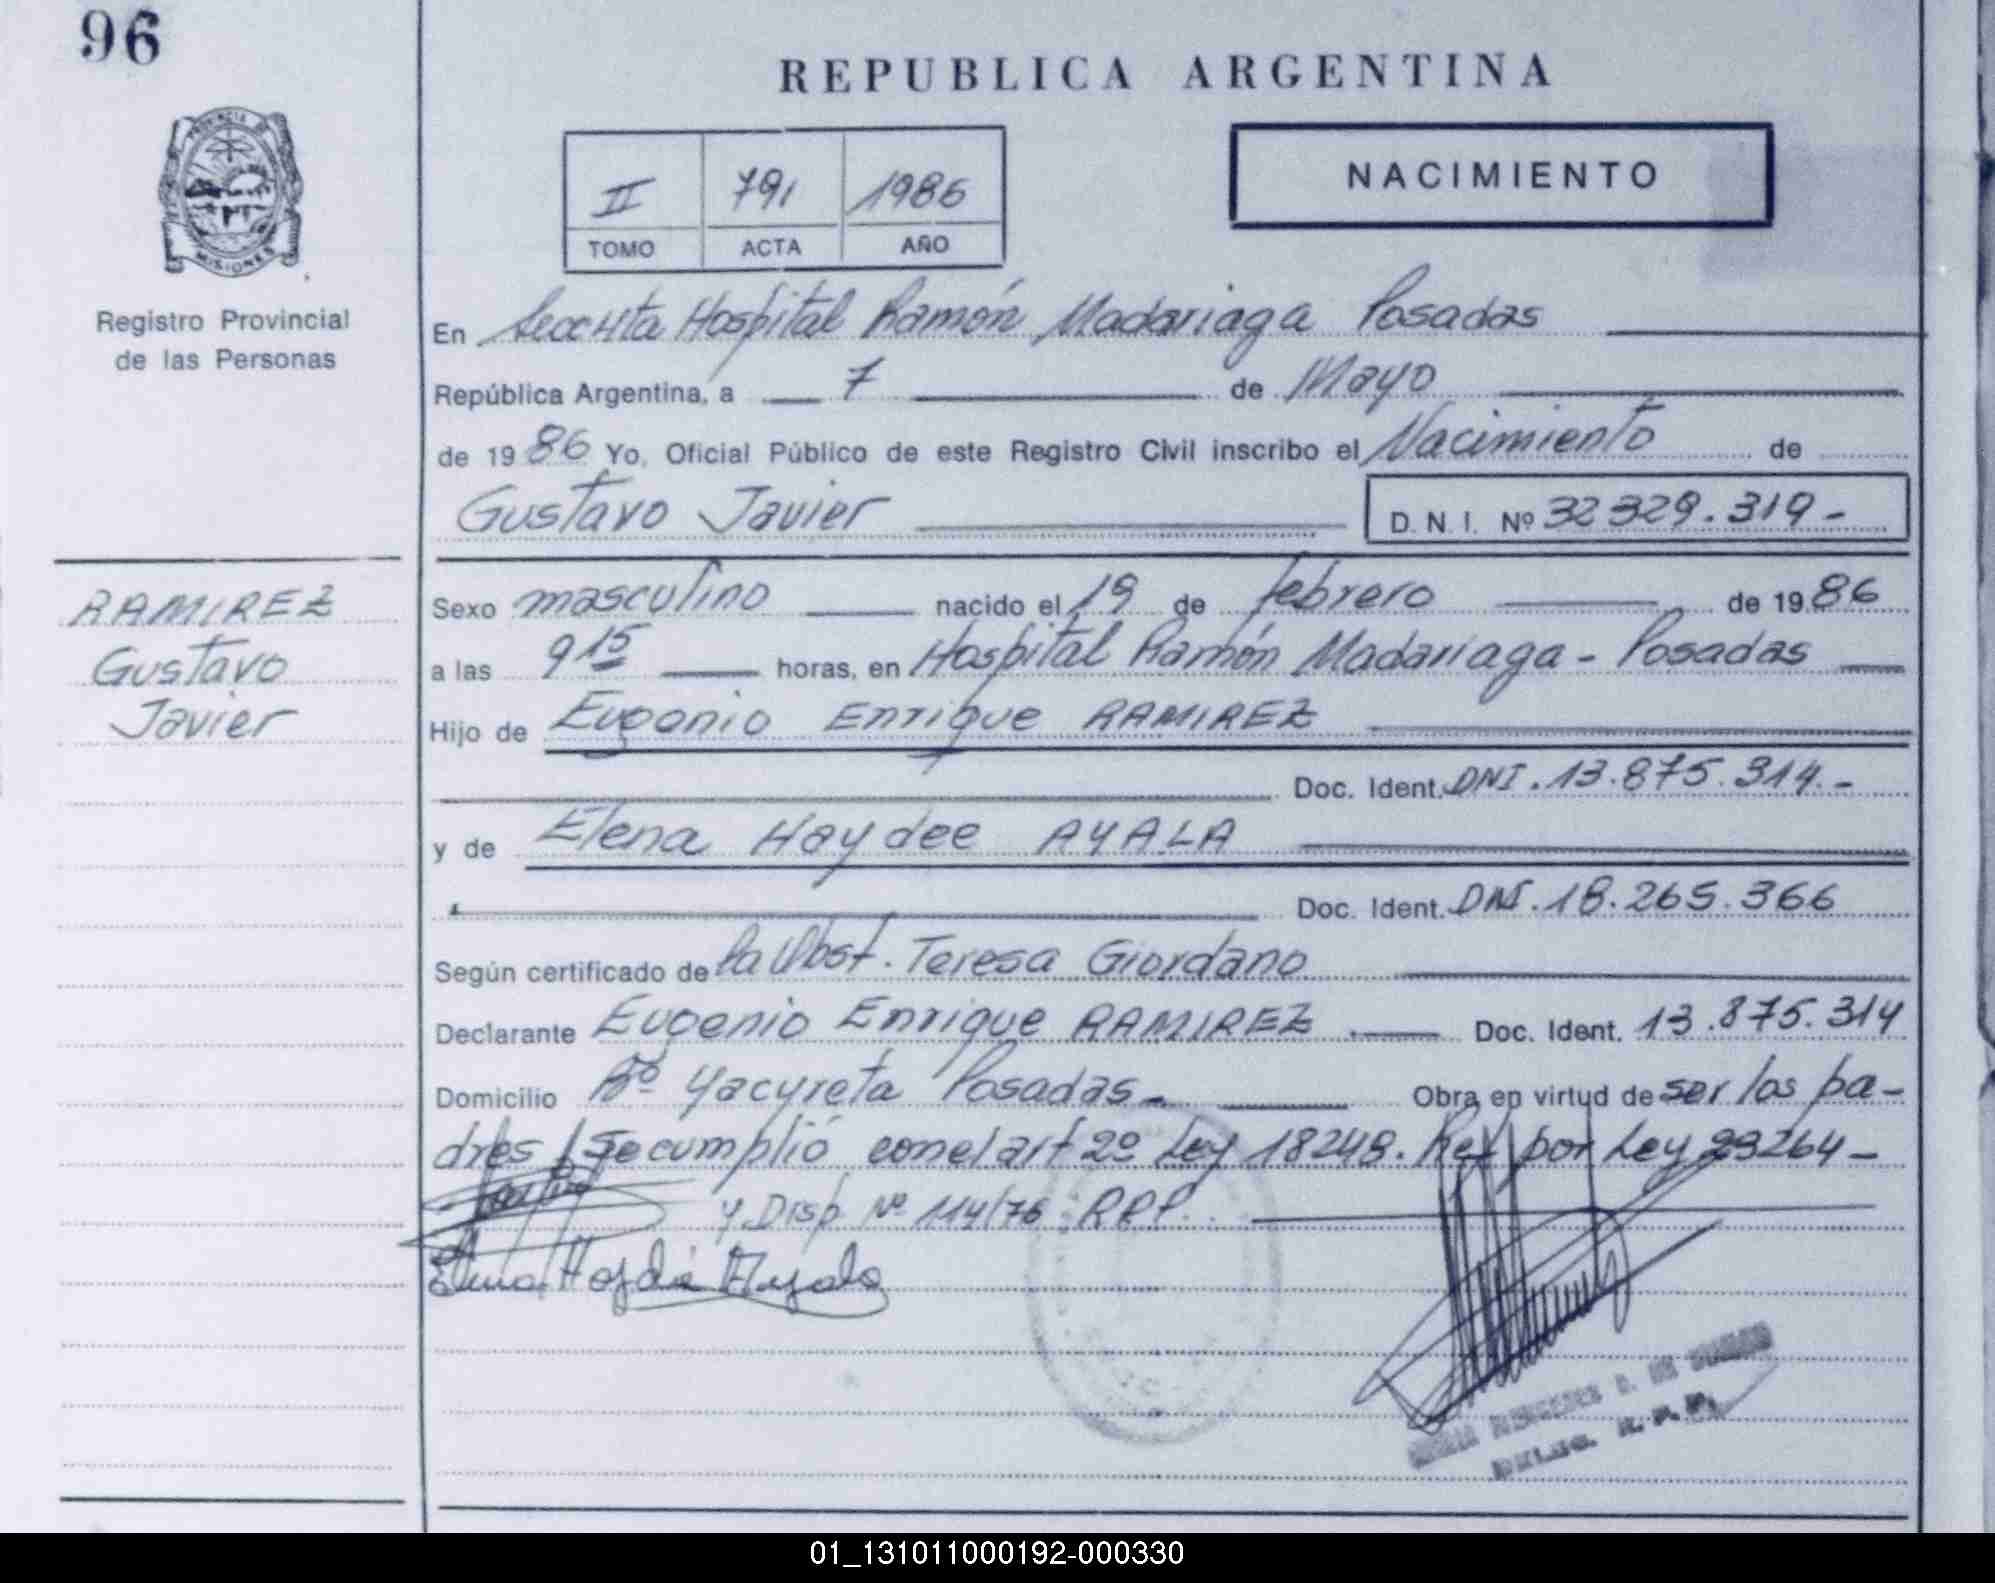 96
REPUBLICA ARGENTINA
PROVINCIA DE
MISIONES
Registro Provincial
de las Personas
II 791 1986
TOMO ACTA AÑO
NACIMIENTO
En Secc 4ta Hospital Ramón Madariaga Posadas
República Argentina, a 7 de Mayo
de 1986 Yo, Oficial Público de este Registro Civil inscribo el Nacimiento de
Gustavo Javier D.N.I. Nº 32 329.319-
RAMIREZ
Gustavo
Javier
Sexo masculino nacido el 19 de febrero de 1986
a las 9 15 horas, en Hospital Ramón Madariaga - Posadas
Hijo de Eugenio Enrique RAMIREZ
Doc. Ident. DNI. 13.875.314.-
y de Elena Haydee AYALA
Doc. Ident. DNI. 18.265.366
Según certificado de la Obst. Teresa Giordano
Declarante Eugenio Enrique RAMIREZ Doc. Ident. 13.875.314
Domicilio Bº Yacyreta Posadas- Obra en virtud de ser los pa-
dres / Se cumplió con el art 2º Ley 18248. Ref por Ley 23264-
y Disp Nº 114/76 RPP.
Elena Haydee Ayala
01_131011000192-000330